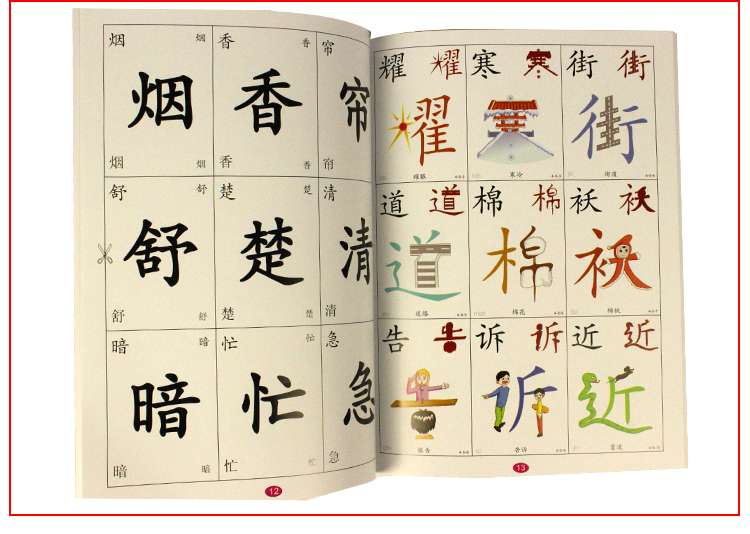 烟 烟 香 香 帘
烟 香 帘
烟 烟 香 香 帘
舒 舒 楚 楚 清
舒 楚 清
舒 舒 楚 楚 清
暗 暗 忙 忙 急
暗 忙 急
暗 暗 忙 忙 急
12
耀 耀 寒 寒 街 街
耀 街
耀眼 寒冷 街道
道 道 棉 棉 袄 袄
道 棉 袄
道路 棉花 棉袄
告 告 诉 诉 近 近
诉 近
报告 告诉 靠近
13